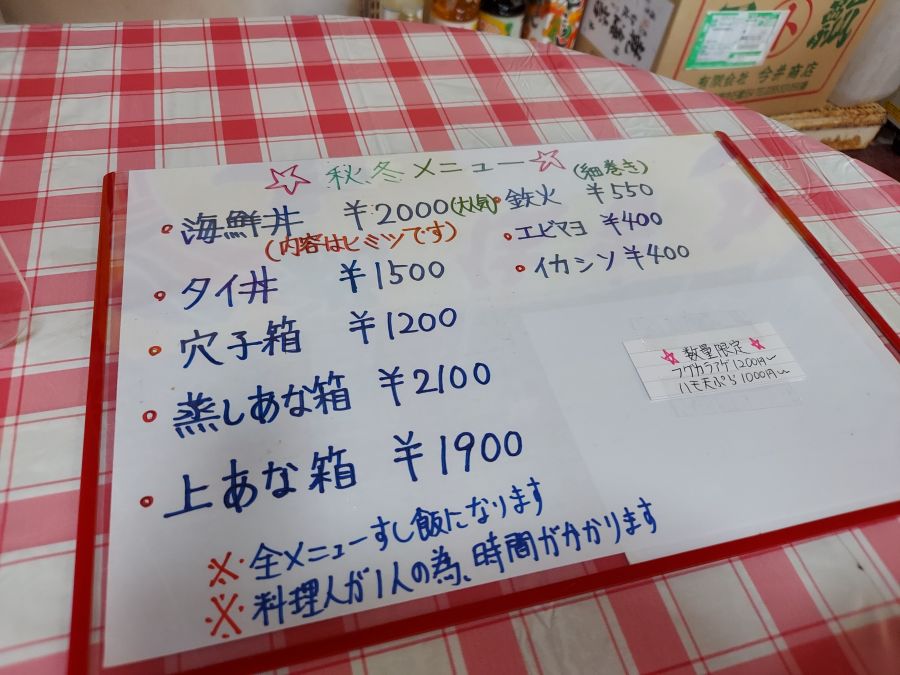 ☆秋冬メニュー☆
・海鮮丼 ¥2000(大人気)
(内容はヒミツです)
・タイ丼 ¥1500
・穴子箱 ¥1200
・蒸しあな箱 ¥2100
・上あな箱 ¥1900
(細巻き)
・鉄火 ¥550
・エビマヨ ¥400
・イカシソ ¥400
☆数量限定☆
フグカラアゲ1200円〜
ハモ天ぷら1000円〜
※全メニューすし飯になります
※料理人が1人の為、時間がかかります
有限会社 今井商店